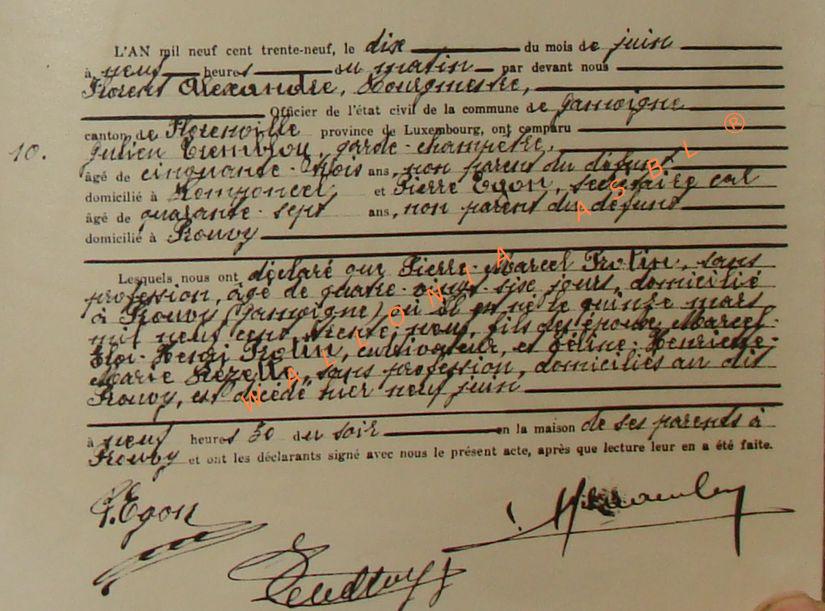 L'AN mil neuf cent trente-neuf, le dix du mois de juin
à neuf heures du matin par devant nous
Florent Alexandre, Bourgmestre,
Officier de l'état civil de la commune de Jamoigne
canton de Florenville province de Luxembourg, ont comparu
10. Julien garde-champêtre,
âgé de cinquante-trois ans, non parent du défunt
domicilié à Romponcel et Pierre Egon, secrétaire cal
âgé de quarante-sept ans, non parent du défunt
domicilié à Prouvy
Lesquels nous ont déclaré que Pierre-Marcel Protin, sans
profession, âgé de quatre-vingt-six jours, domicilié
à Prouvy (Jamoigne) où il est né le quinze mars
mil neuf cent trente-neuf, fils des époux Marcel-
Eloi-Henri Protin, cultivateur, et Céline-Henriette-
Marie sans profession, domiciliés au dit
Prouvy, est décédé hier neuf juin
à neuf heures 30 du soir en la maison de ses parents à
Prouvy et ont les déclarants signé avec nous le présent acte, après que lecture leur en a été faite.
P. Egon
WALLONIA ASBL ®